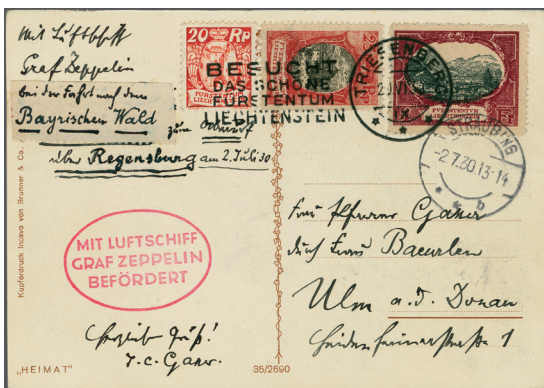 Mit Luftschiff
Graf Zeppelin
bei der Fahrt nach dem
Bayrischen Wald
zum Abwurf
über Regensburg am 2. Juli 30
20 Rp
FÜRSTENTUM
LIECHTENSTEIN
BESUCHT
DAS SCHÖNE
FÜRSTENTUM
LIECHTENSTEIN
TRIESENBERG
IX
STRAUBING
-2.7.30.13-14
b
Kupferdruck Incavo von Brunner & Co.
MIT LUFTSCHIFF
GRAF ZEPPELIN
BEFÖRDERT
Frau Pfarrer
durch Frau Baeurlen
Ulm a. d. Donau
Heidenheimerstraße 1
„HEIMAT"
35/2690